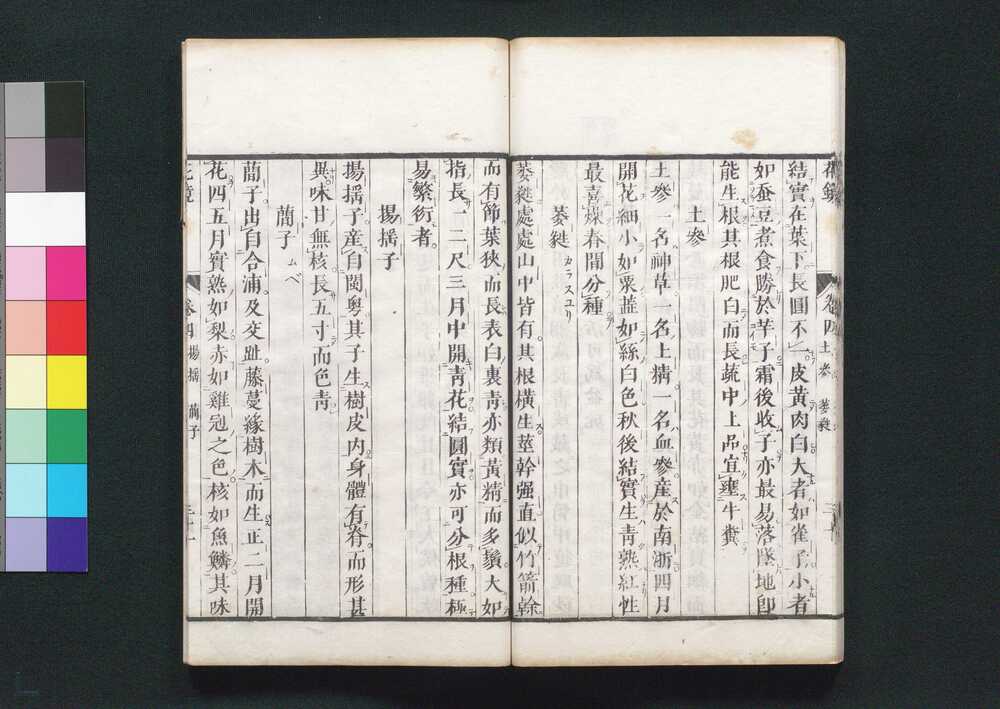 花鏡 卷四 土參 萎蕤 三十
結實在葉下長圓不一皮黃肉白大者如雀子小者
如蚕豆煮食勝於芋子霜後收子亦最易落墜地卽
能生根其根肥白而長蔬中上品宜壅牛糞
土參
土參一名神草一名土精一名血參産於南浙四月
開花細小如粟蕋如絲白色秋後結實生靑熟紅性
最喜燥春間分種
萎蕤 カラスユリ
萎蕤處處山中皆有其根橫生莖幹强直似竹箭幹
而有節葉狹而長表白裏靑亦類黃精而多鬚大如
指長一二尺三月中開靑花結圓實亦可分根種極
易繁衍者
楊搖子
楊搖子産自閩粤其子生樹皮內身體有脊而形甚
異味甘無核長五寸而色靑
蕳子 ムベ
蕳子出自合浦及交趾藤蔓緣樹木而生正二月開
花四五月實熟如梨赤如雞冠之色核如魚鱗其味
花鏡 卷四 楊搖 蕳子 三十一